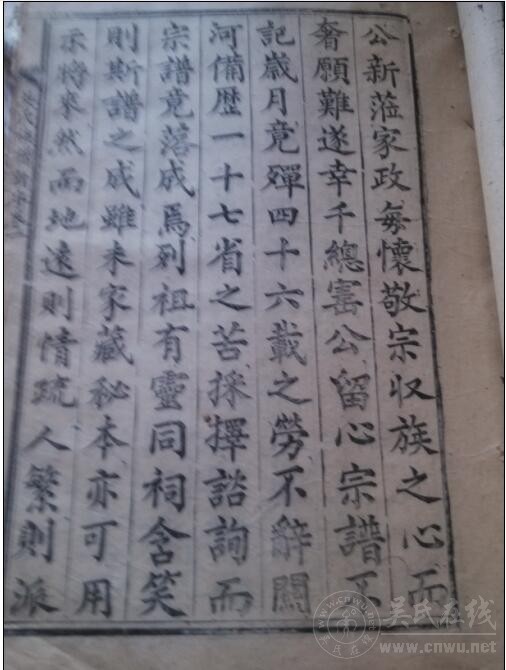 公新蒞家政每懷敬宗収族之心而
奢願難遂幸千總寚公留心宗譜不
記歳月竟殫四十六載之勞不辭關
河備歴一十七省之苦採擇諮詢而
宗譜竟落成焉列祖有靈同祠含笑
則斯譜之成雖未家藏秘本亦可用
示將來然而地遠則情疏人繁則派
吳氏在线
www.cnwu.net